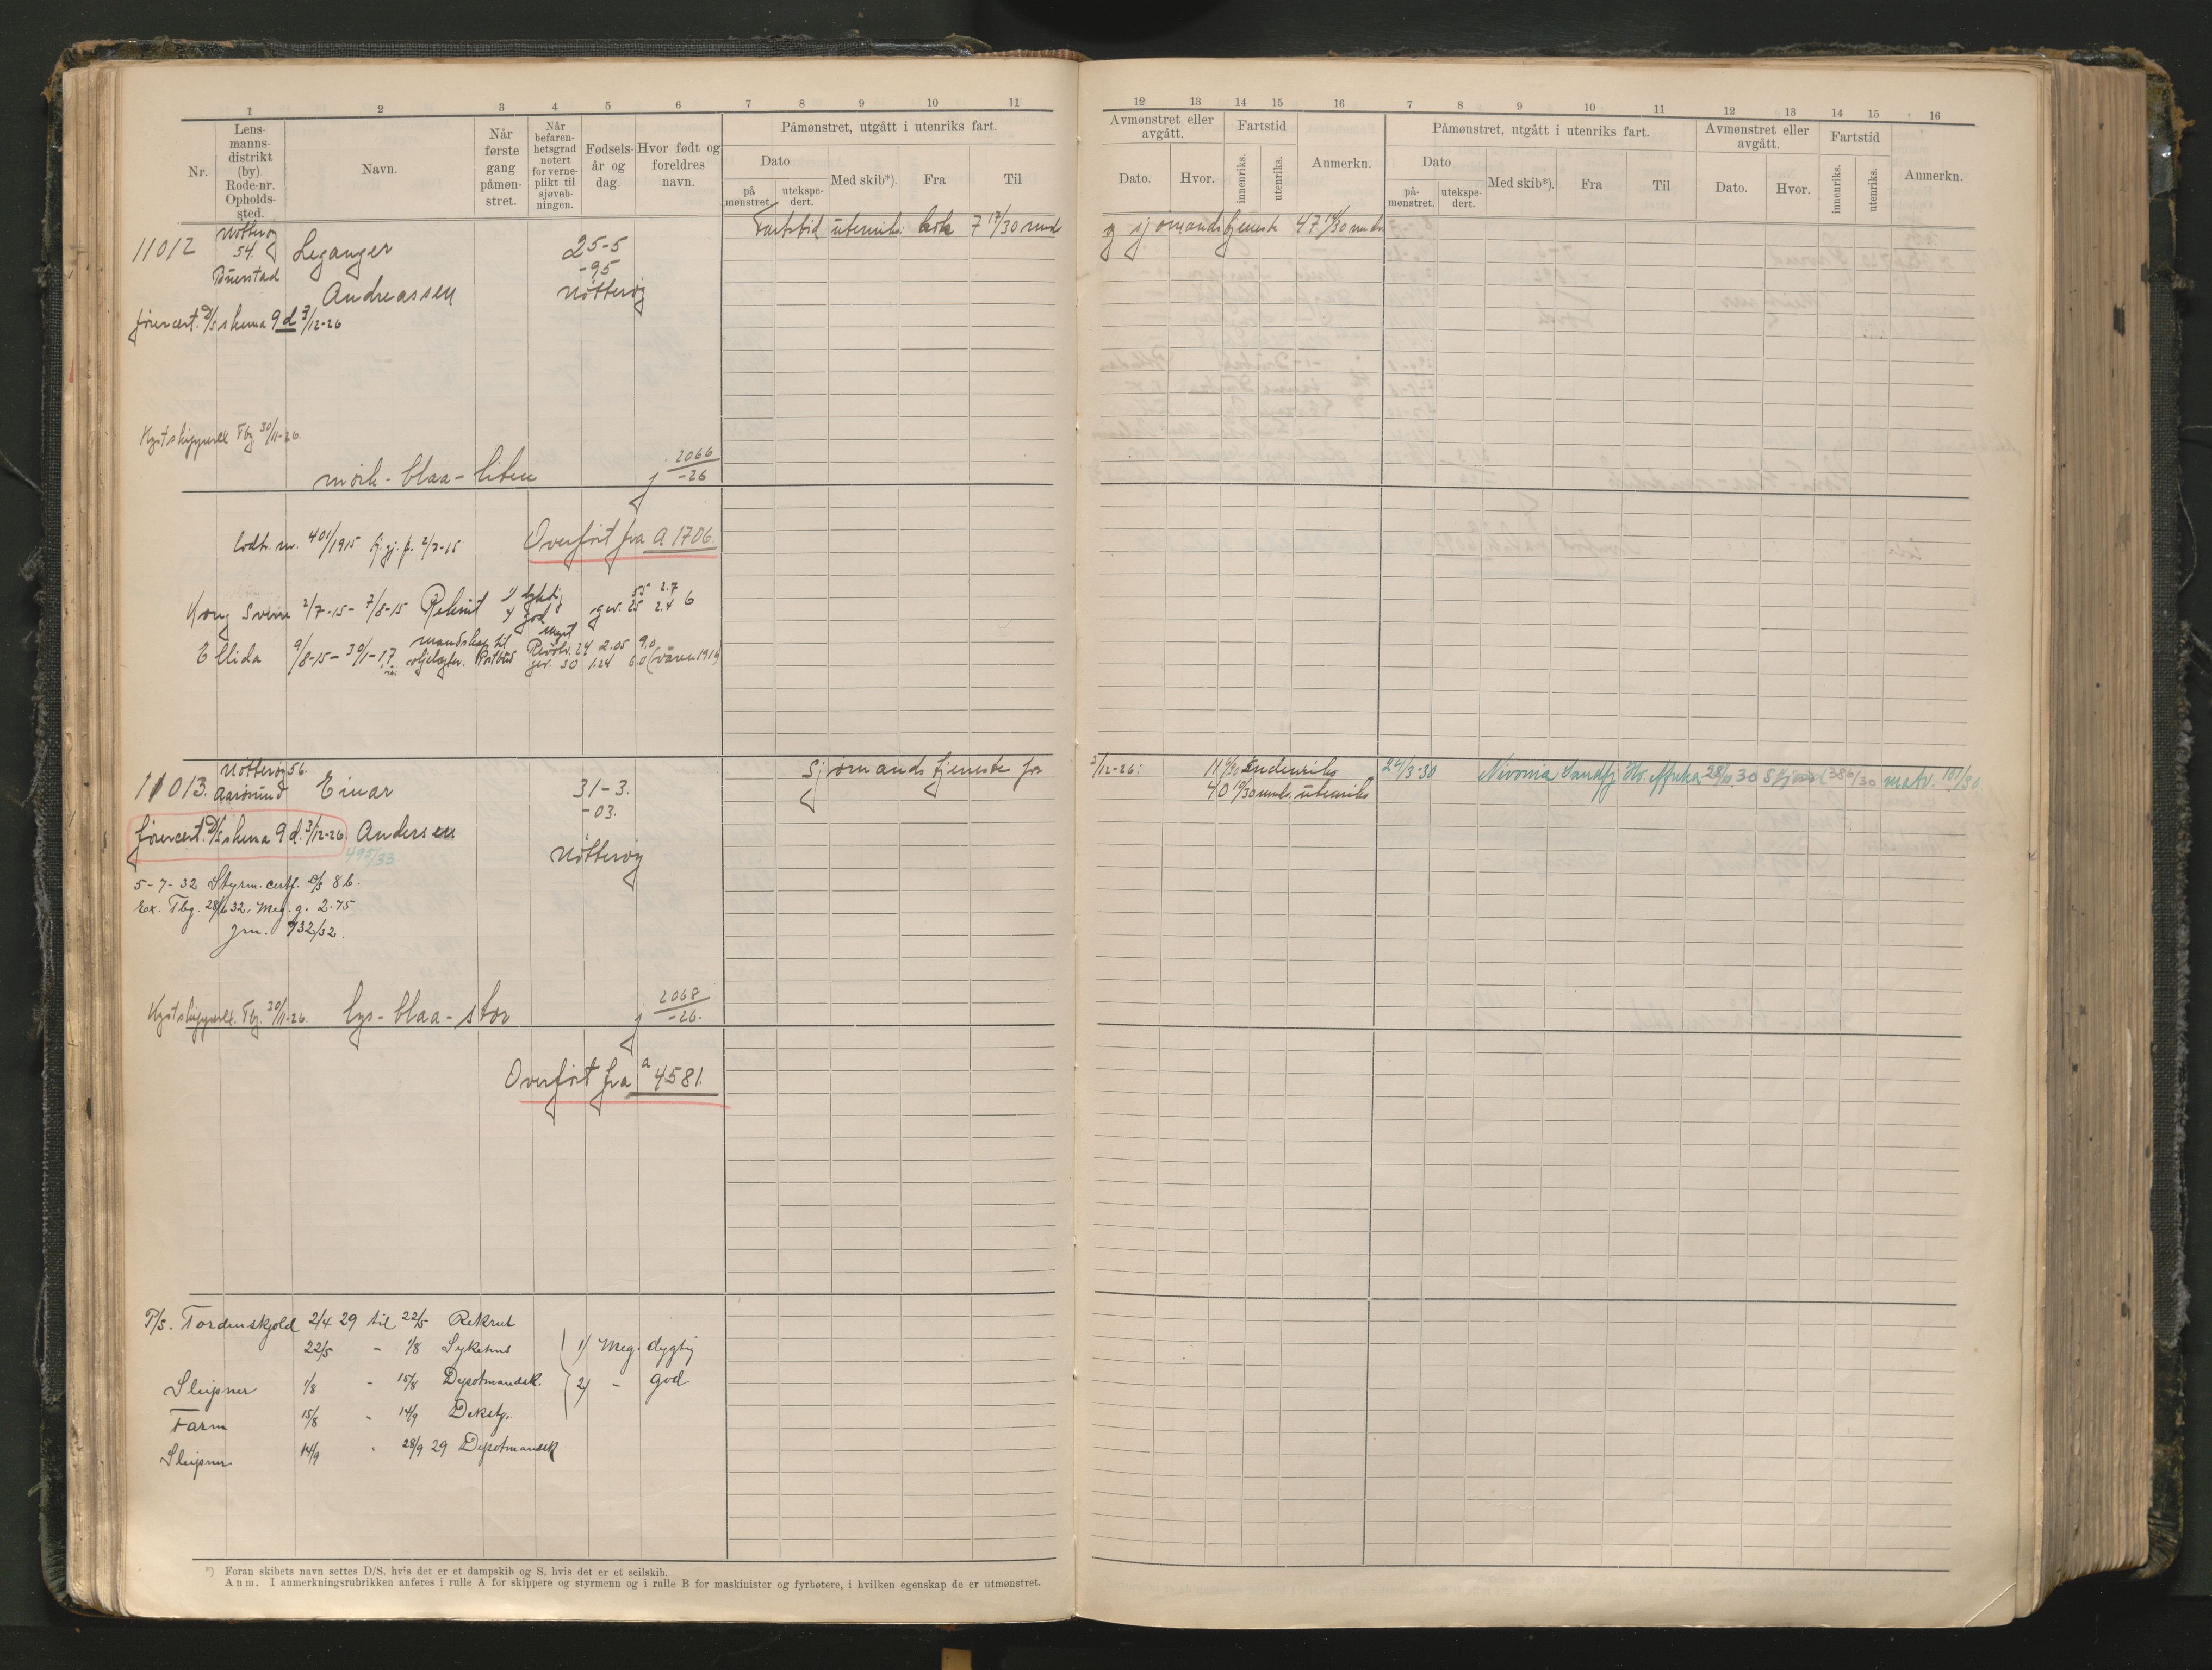 1 2 3 4 5 6 7 8 9 10 11
Nr.
Lens-
manns-
distrikt
(by)
Rode-nr.
Opholds-
sted.
Navn.
Når
første
gang
påmøn-
stret.
Når
befaren-
hetsgrad
notert
for verne-
plikt til
sjøveb-
ningen.
Fødsels-
år og
dag.
Hvor født og
foreldres
navn.
Påmønstret, utgått i utenriks fart.
Dato
på
mønstret.
utekspe-
dert.
Med skib*).
Fra
Til
12 13 14 15 16 7 8 9 10 11 12 13 14 15 16
Avmønstret eller
avgått.
Dato.
Hvor.
Fartstid
innenriks.
utenriks.
Anmerkn.
Påmønstret, utgått i utenriks fart.
Dato
på-
mønstret.
utekspe-
dert.
Med skib*).
Fra
Til
Avmønstret eller
avgått.
Dato.
Hvor.
Fartstid
innenriks.
utenriks.
Anmerkn.
Nøtterøy
11012 54. Leganger 25-5
Buerstad -95
Andreassen Nøtterøy
førercert. D/S skema 9 d 3/12-26
Fartstid utenriks 7 17/30 mndr
sjømandstjeneste 47 14/30 mndr
Kystskipperex Tbg 30/11-26.
mørk-blaa-liten j 2066/-26
lodtr. nr. 401/1915 2/7-15 Overført fra a 1706.
Kong Sverre 2/7-15- 7/8-15 Rekrut 1) dygtig 55 2.7
2) god gev. 25 2.4 6
Ellida 9/8-15- 30/1-17 mandskap til meget Revolv. 24 2.05 9.0
oljelagter. Postbud gev. 30 1.24 6.0 (våren 1916)
Nøtterøy 56.
11013. Aarøsund Einar 31-3.
-03.
førercert. D/S skema 9 d. 3/12-26. Andersen
495/33 Nøtterøy
5-7-32 Styrm. certf. D/S 8 b.
Ex. Tbg. 28/6 32. Meg. g. 2.75
jrn. 932/32.
Sjømandstjeneste før 3/12-26: indenriks
40 19/30 mndr. utenriks
24/3-30 Nivonia Sandfj. Afrika 28/11 30 Sfjord (386/30 matr. 101/30
Kystskipperex. Tbg. 30/11-26. lys-blaa-stor j 2068/-26.
Overført fra a 4581.
P/S. Tordenskjold 2/4 29 til 22/5 Rekrut
22/5 - 1/8 Sykehus 1) Meg. dygtig
Sleipner 1/8 - 15/8 Depotmandsk. 2) - god
Farm 15/8 - 14/9 Dekstg.
Sleipner 14/9 - 28/9 29 Depotmandsk
*) Foran skibets navn settes D/S, hvis det er et dampskib og S, hvis det er et seilskib.
Anm. I anmerkningsrubrikken anføres i rulle A for skippere og styrmenn og i rulle B for maskinister og fyrbøtere, i hvilken egenskap de er utmønstret.